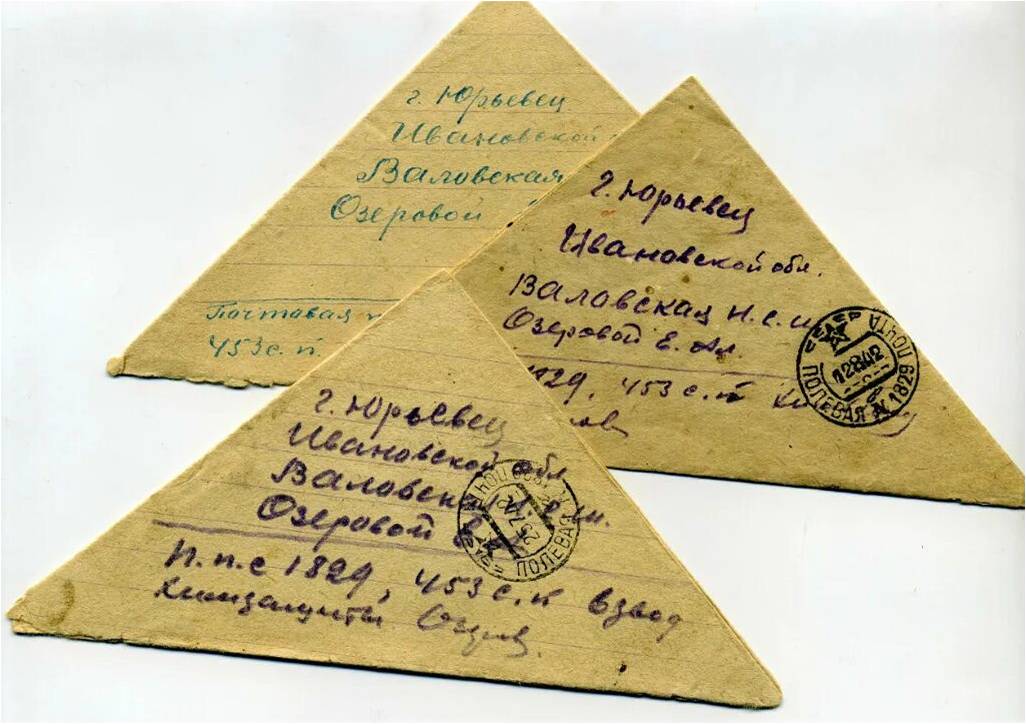 г. Юрьевец
Ивановской
Валовская
Озеровой
Почтовая
453 с. п.
г. Юрьевец
Ивановской обл.
Валовская н. с. ш.
Озеровой Е. Ал.
1829, 453 с. п
ПОЛЕВАЯ ПОЧТА
№ 1829
12 8 42
г. Юрьевец
Ивановской обл
Валовская н. с. ш.
Озеровой Е.
П. п. с 1829, 453 с. п взвод
химзащиты Озеров.
ПОЛЕВАЯ
25 7 42